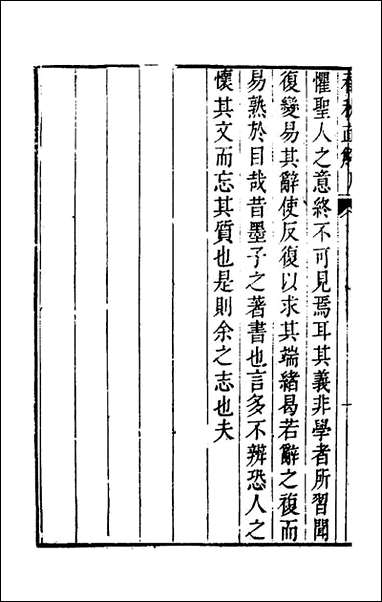 春秋直解
懼聖人之意終不可見焉耳其義非學者所習聞
復變易其辭使反復以求其端緒曷若辭之複而
易熟於目哉昔墨子之著書也言多不辨恐人之
懷其文而忘其質也是則余之志也夫